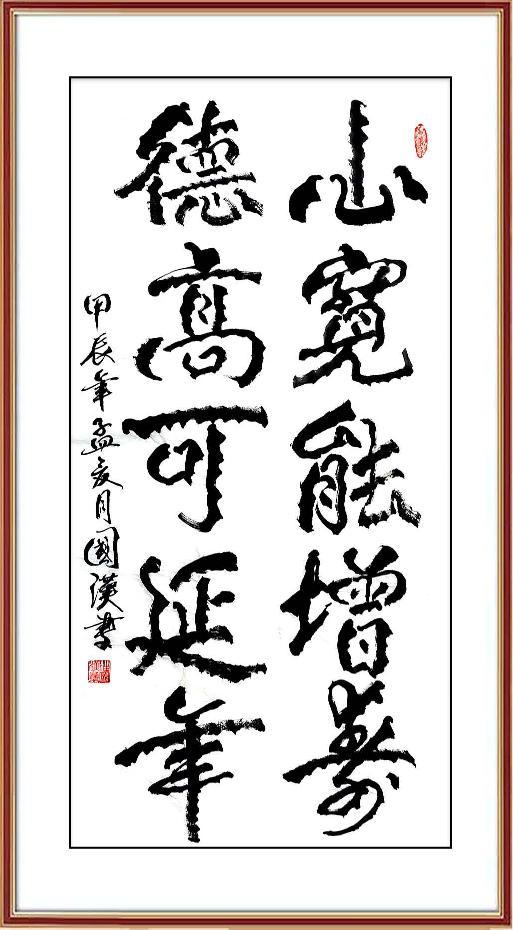 心寬能增壽
德高可延年
甲辰年孟夏月國漢書